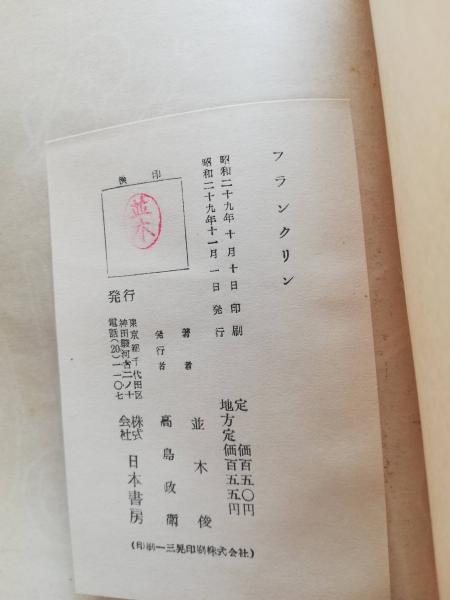 フランクリン
昭和二十九年十月十日印刷
昭和二十九年十一月一日発行
定価百五〇円
地方定価百五五円
検印
並木
著者 並木俊
発行者 高島政衛
発行
東京都千代田区
神田駿河台二ノ十
電話(20)一一〇七
株式会社 日本書房
(印刷—三晃印刷株式会社)